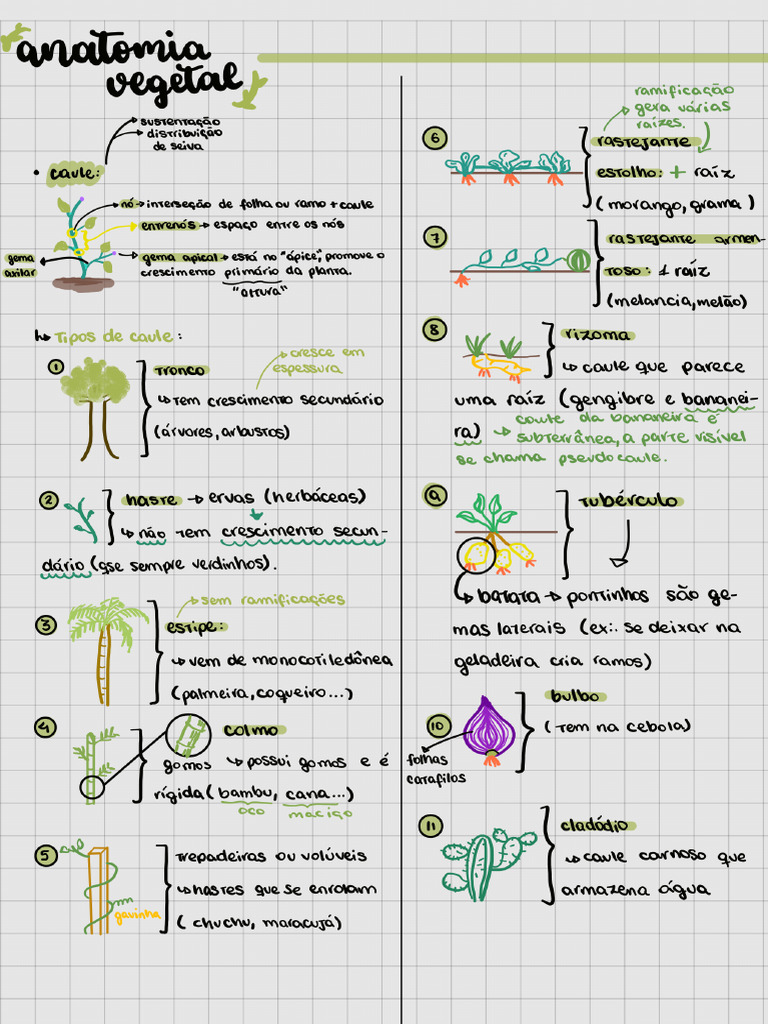 anatomia
vegetal
sustentação
distribuição
de seiva
• caule:
nó → interseção de folha ou ramo + caule
entrenós → espaço entre os nós
gema
axilar
gema apical → está no "ápice", promove o
crescimento primário da planta.
"altura"
↳ Tipos de caule:
1
tronco
cresce em
espessura
↳ tem crescimento secundário
(árvores, arbustos)
2
haste → ervas (herbáceas)
↳ não tem crescimento secun-
dário (qse sempre verdinhos).
3
sem ramificações
estipe:
↳ vem de monocotiledônea
(palmeira, coqueiro...)
4
colmo
gomos ↳ possui gomos e é
rígida (bambu, cana...)
oco maciço
5
trepadeiras ou volúveis
↳ hastes que se enrolam
gavinha
(chuchu, maracujá)
6
ramificação
gera várias
raízes.
rastejante
estolho: + raíz
(morango, grama)
7
rastejante armen-
toso: 1 raíz
(melancia, melão)
8
rizoma
↳ caule que parece
uma raíz (gengibre e bananei-
ra) → caule da bananeira é
subterrânea, a parte visível
se chama pseudocaule.
9
tubérculo
↳ batata → pontinhos são ge-
mas laterais (ex:. se deixar na
geladeira cria ramos)
10
bulbo
(tem na cebola)
folhas
catafilos
11
cladódio
↳ caule carnoso que
armazena água